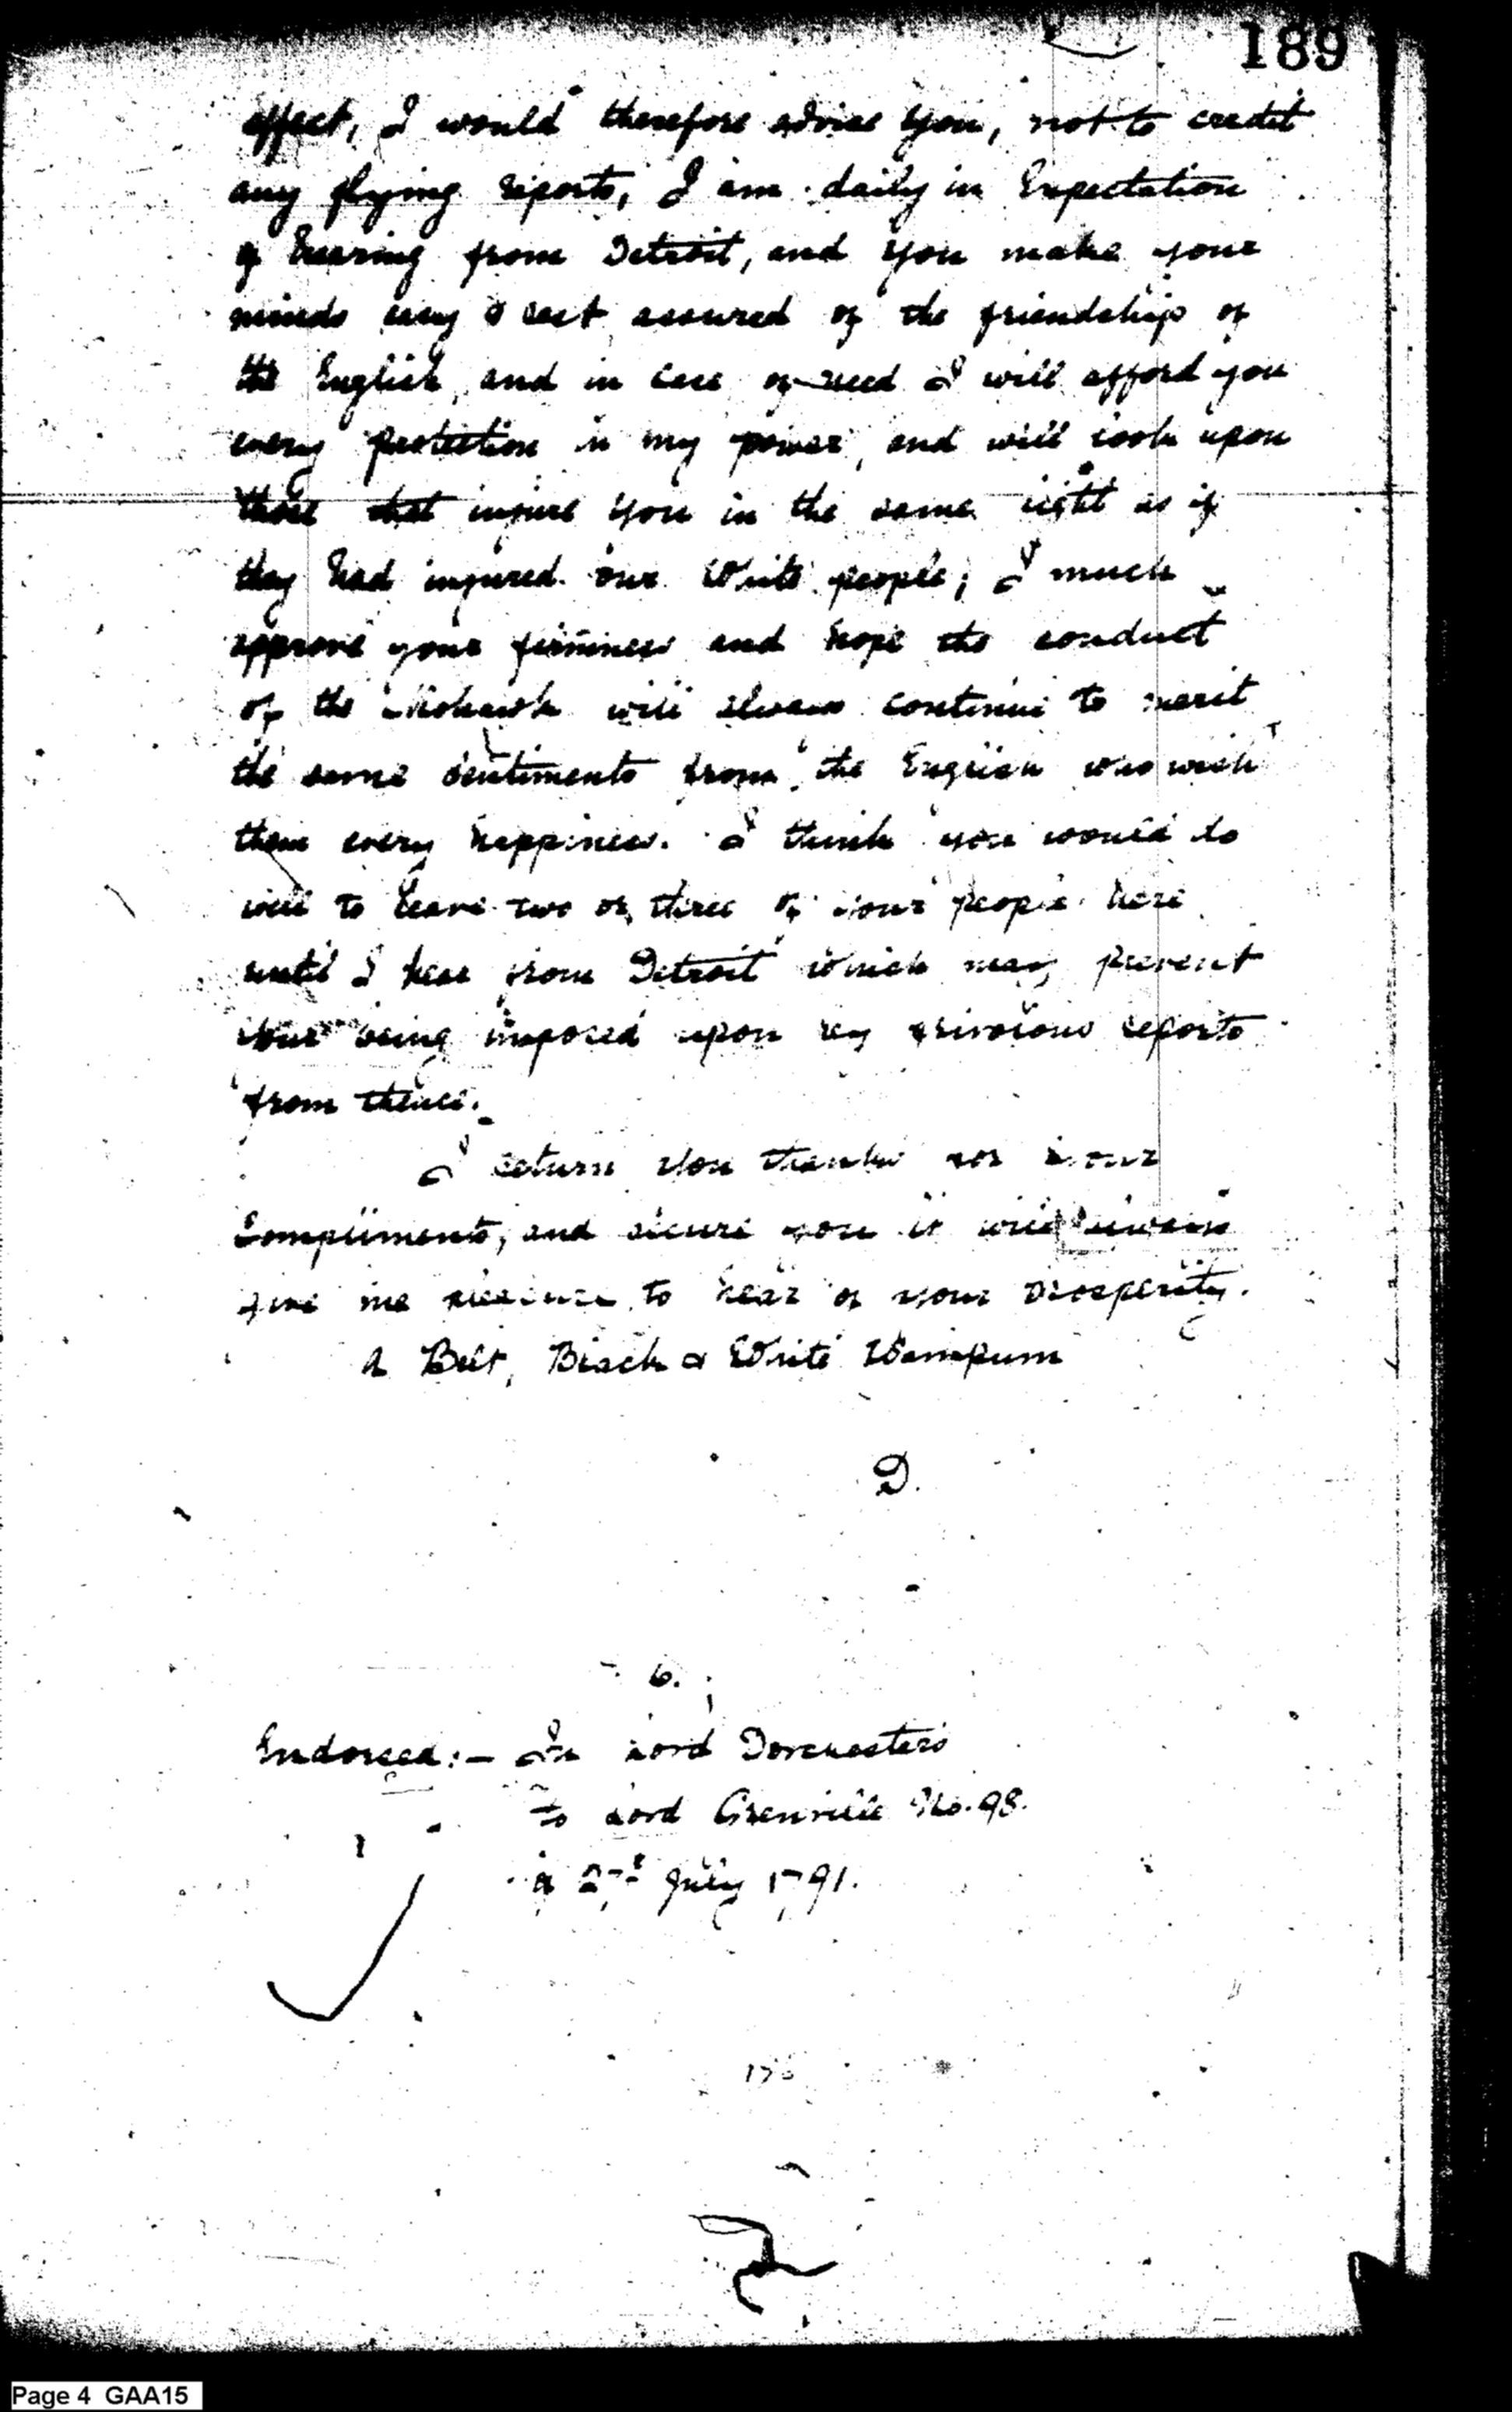 189
effect, I would therefore advise you, not to credit
any flying reports, I am daily in Expectation
of hearing from Detroit, and you make your
minds easy & rest assured of the friendship of
the English, and in case of need I will afford you
every protection in my power, and will look upon
those that injure you in the same light as if
they had injured our White people; I much
approve your firmness and hope the conduct
of the Mohawk will always continue to merit
the same sentiments from the English who wish
them every happiness. I think you would do
well to leave two or three of your people here
until I hear from Detroit which may prevent
your being imposed upon by frivolous reports
from thence.
I return you thanks for your
Compliments, and assure you it will always
give me pleasure to hear of your prosperity.
A Belt, Black & White Wampum
D.
6.
Endorsed:- In Lord Dorchester's
to Lord Grenville No. 98.
of 27th July 1791.
Page 4 GAA15